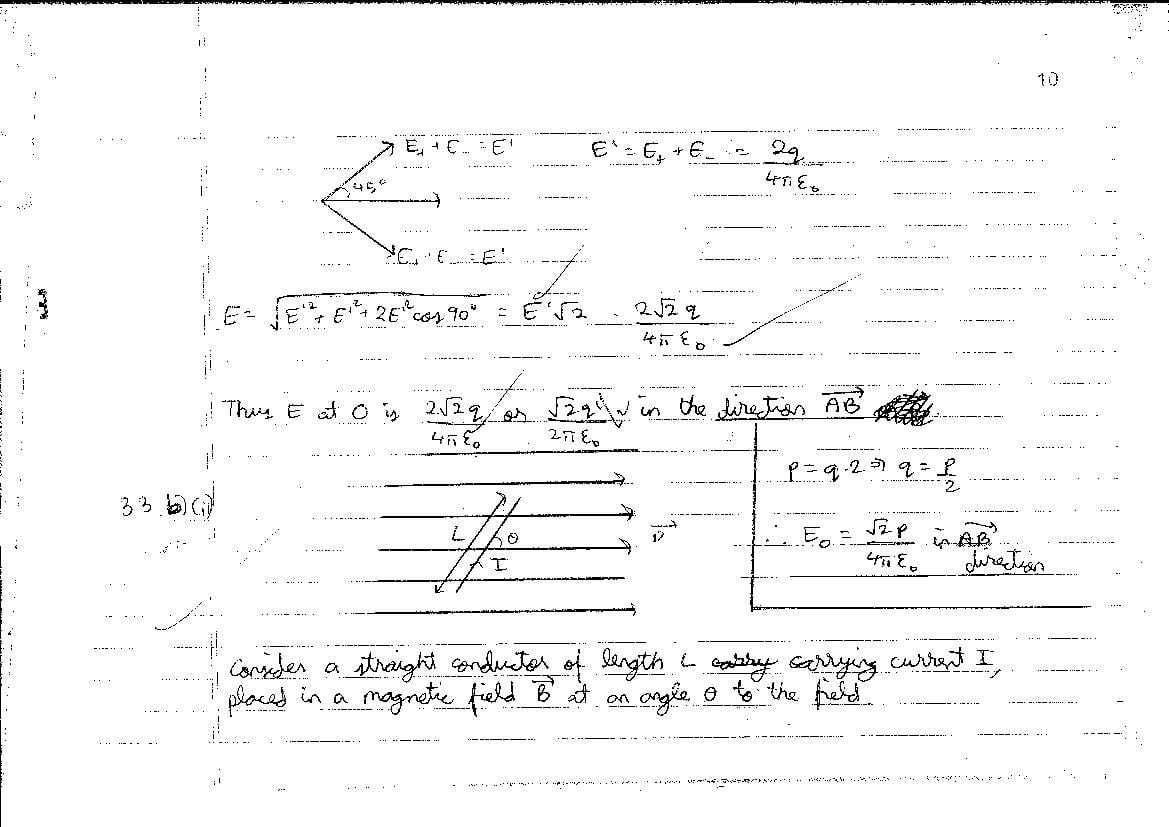 10
E₊ + E₋ = E'
E' = E₊ + E₋ = 2q / 4πε₀
45°
E₊ + E₋ = E'
E = √(E'² + E'² + 2E'² cos 90°) = E'√2 2√2 q / 4πε₀
Thus E at O is 2√2q / 4πε₀ or √2q / 2πε₀ in the direction AB
p = q.2 ⇒ q = p/2
33 b)(i)
L θ
I
∴ E₀ = √2 p / 4πε₀ in AB
direction
Consider a straight conductor of length L carry carrying current I,
placed in a magnetic field B at an angle θ to the field